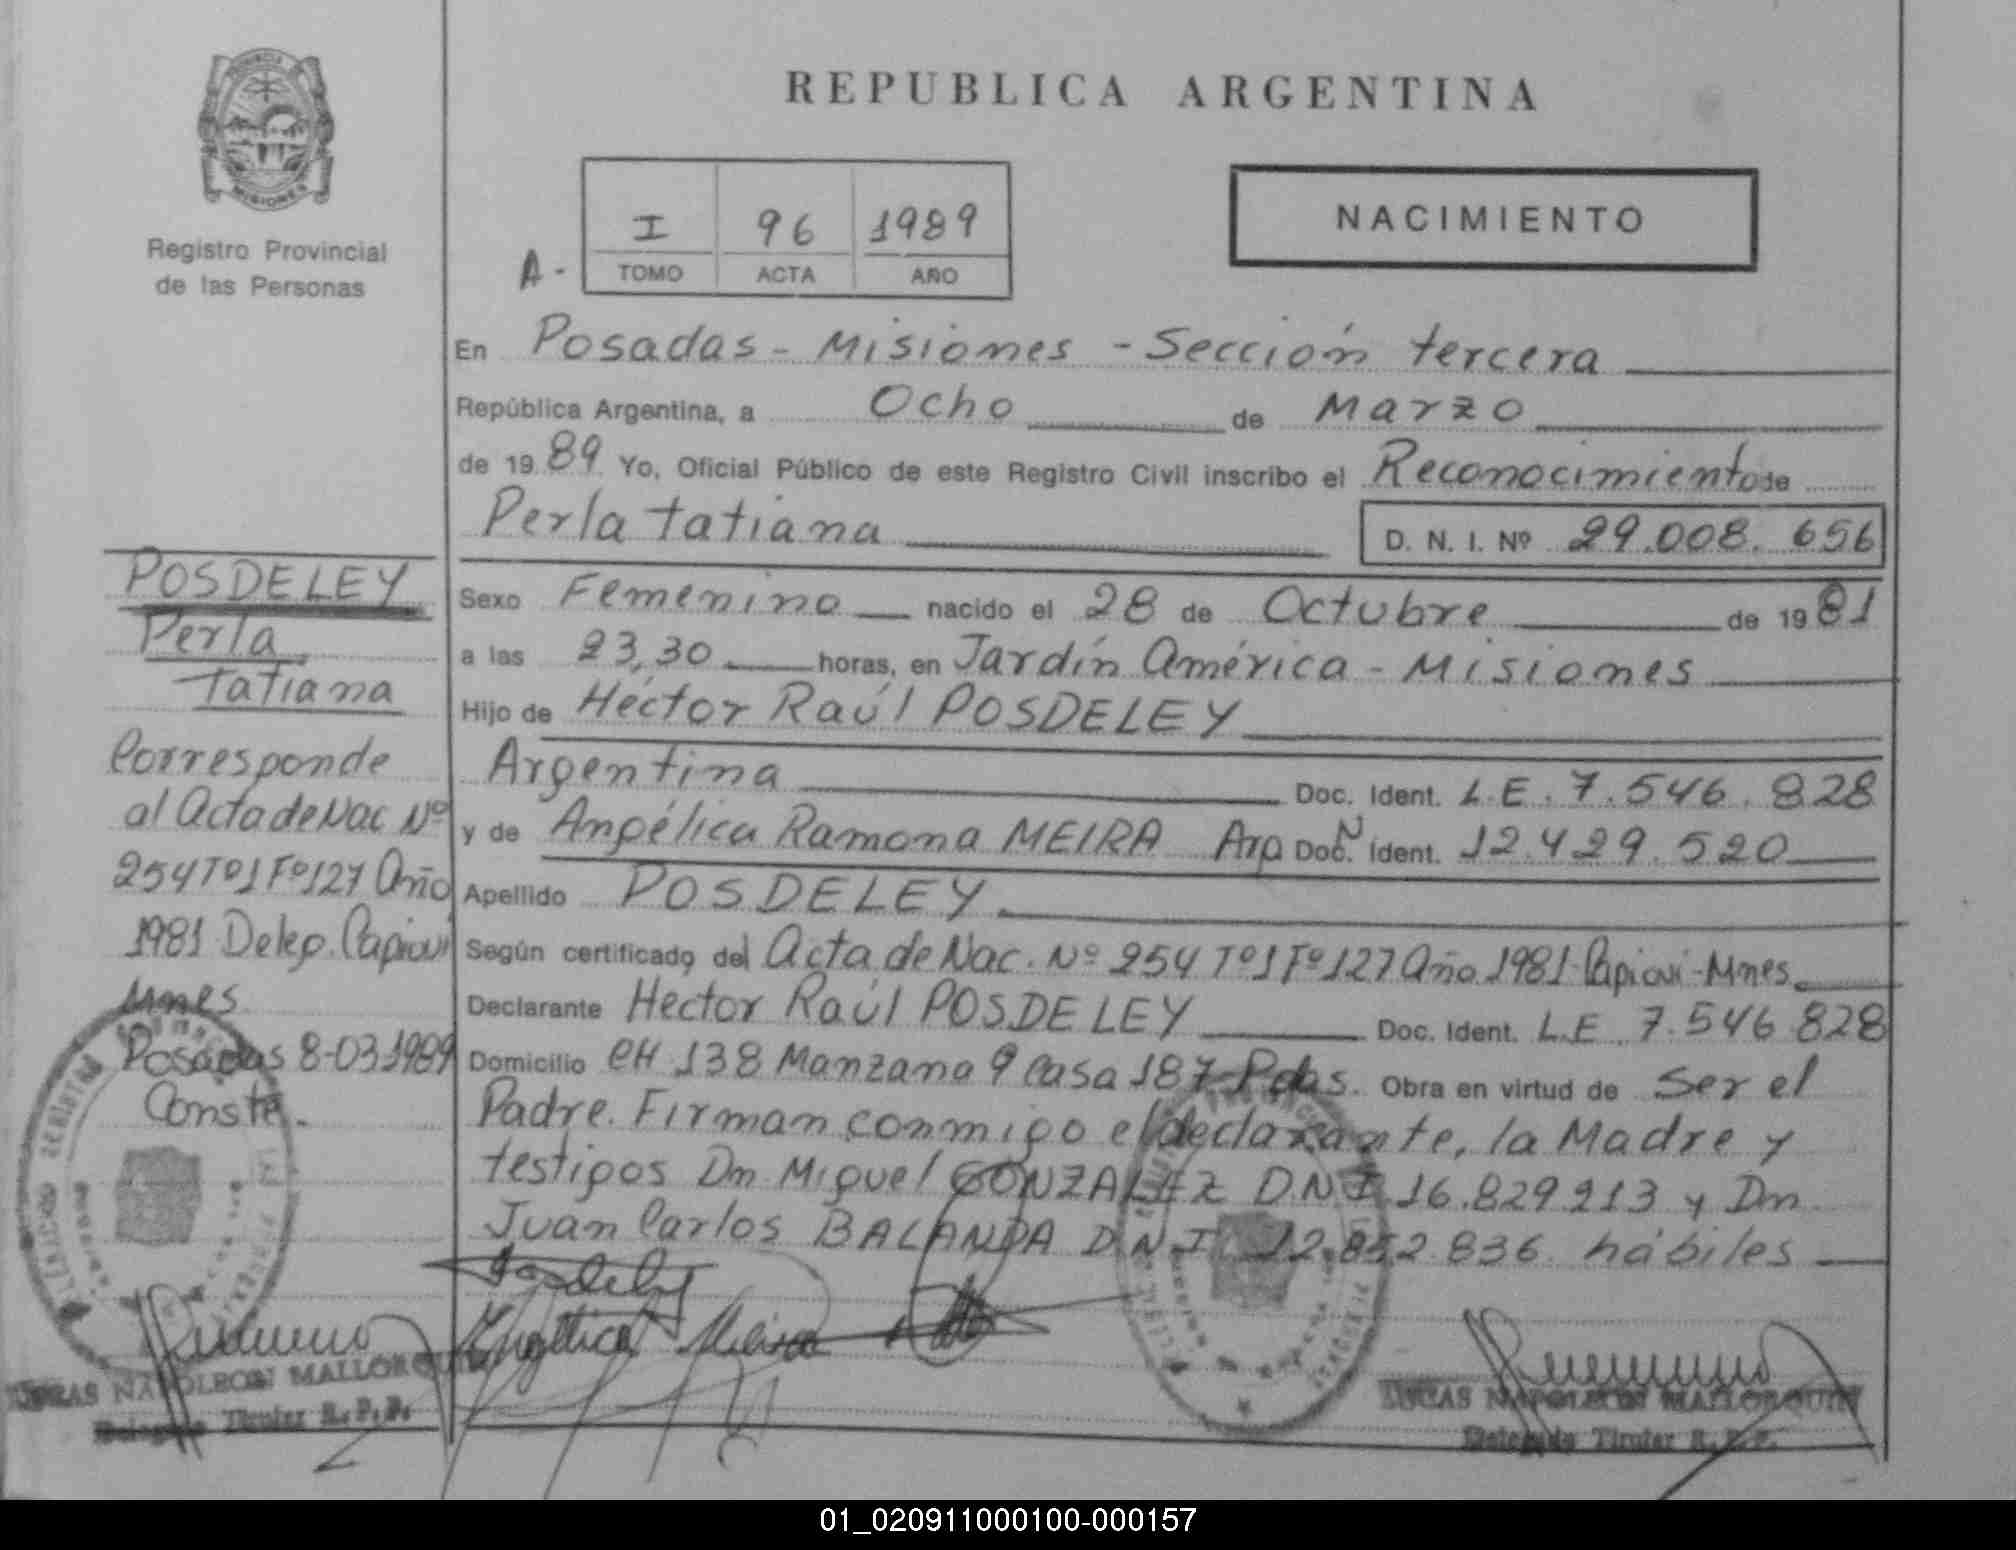 REPUBLICA ARGENTINA
PROVINCIA
MISIONES
Registro Provincial
de las Personas
NACIMIENTO
A- I 96 1989
TOMO ACTA AÑO
En Posadas - Misiones - Sección tercera
República Argentina, a Ocho de Marzo
de 1989 Yo, Oficial Público de este Registro Civil inscribo el Reconocimiento de
Perla tatiana D. N. I. Nº 29.008.656
Sexo Femenino nacido el 28 de Octubre de 1981
a las 23,30 horas, en Jardín América - Misiones
Hijo de Héctor Raúl POSDELEY
Argentina Doc. Ident. L.E. 7.546.828
y de Angélica Ramona MEIRA Arg Doc. Ident. 12.429.520
Apellido POSDELEY
Según certificado del Acta de Nac. Nº 254 Tº1 Fº127 Año 1981-Capioví-Mnes.
Declarante Héctor Raúl POSDELEY Doc. Ident. L.E. 7.546.828
Domicilio CH 138 Manzana 9 Casa 187-Pdas. Obra en virtud de ser el
Padre. Firman conmigo el declarante, la Madre y
testigos Dn Miguel GONZALEZ D.N.I. 16.829.213 y Dn
Juan Carlos BALANDA D.N.I. 12.852.836 hábiles
POSDELEY
Perla
Tatiana
Corresponde
al Acta de Nac Nº
254 Tº1 Fº127 Año
1981 Deleg. Capioví
Mnes
Posadas 8-03-1989
Conste.
Angelica Meira
LUCAS NAPOLEON MALLORQUIN
Delegado Titular R. P. P.
LUCAS NAPOLEON MALLORQUIN
Delegado Titular R. P. P.
01_020911000100-000157